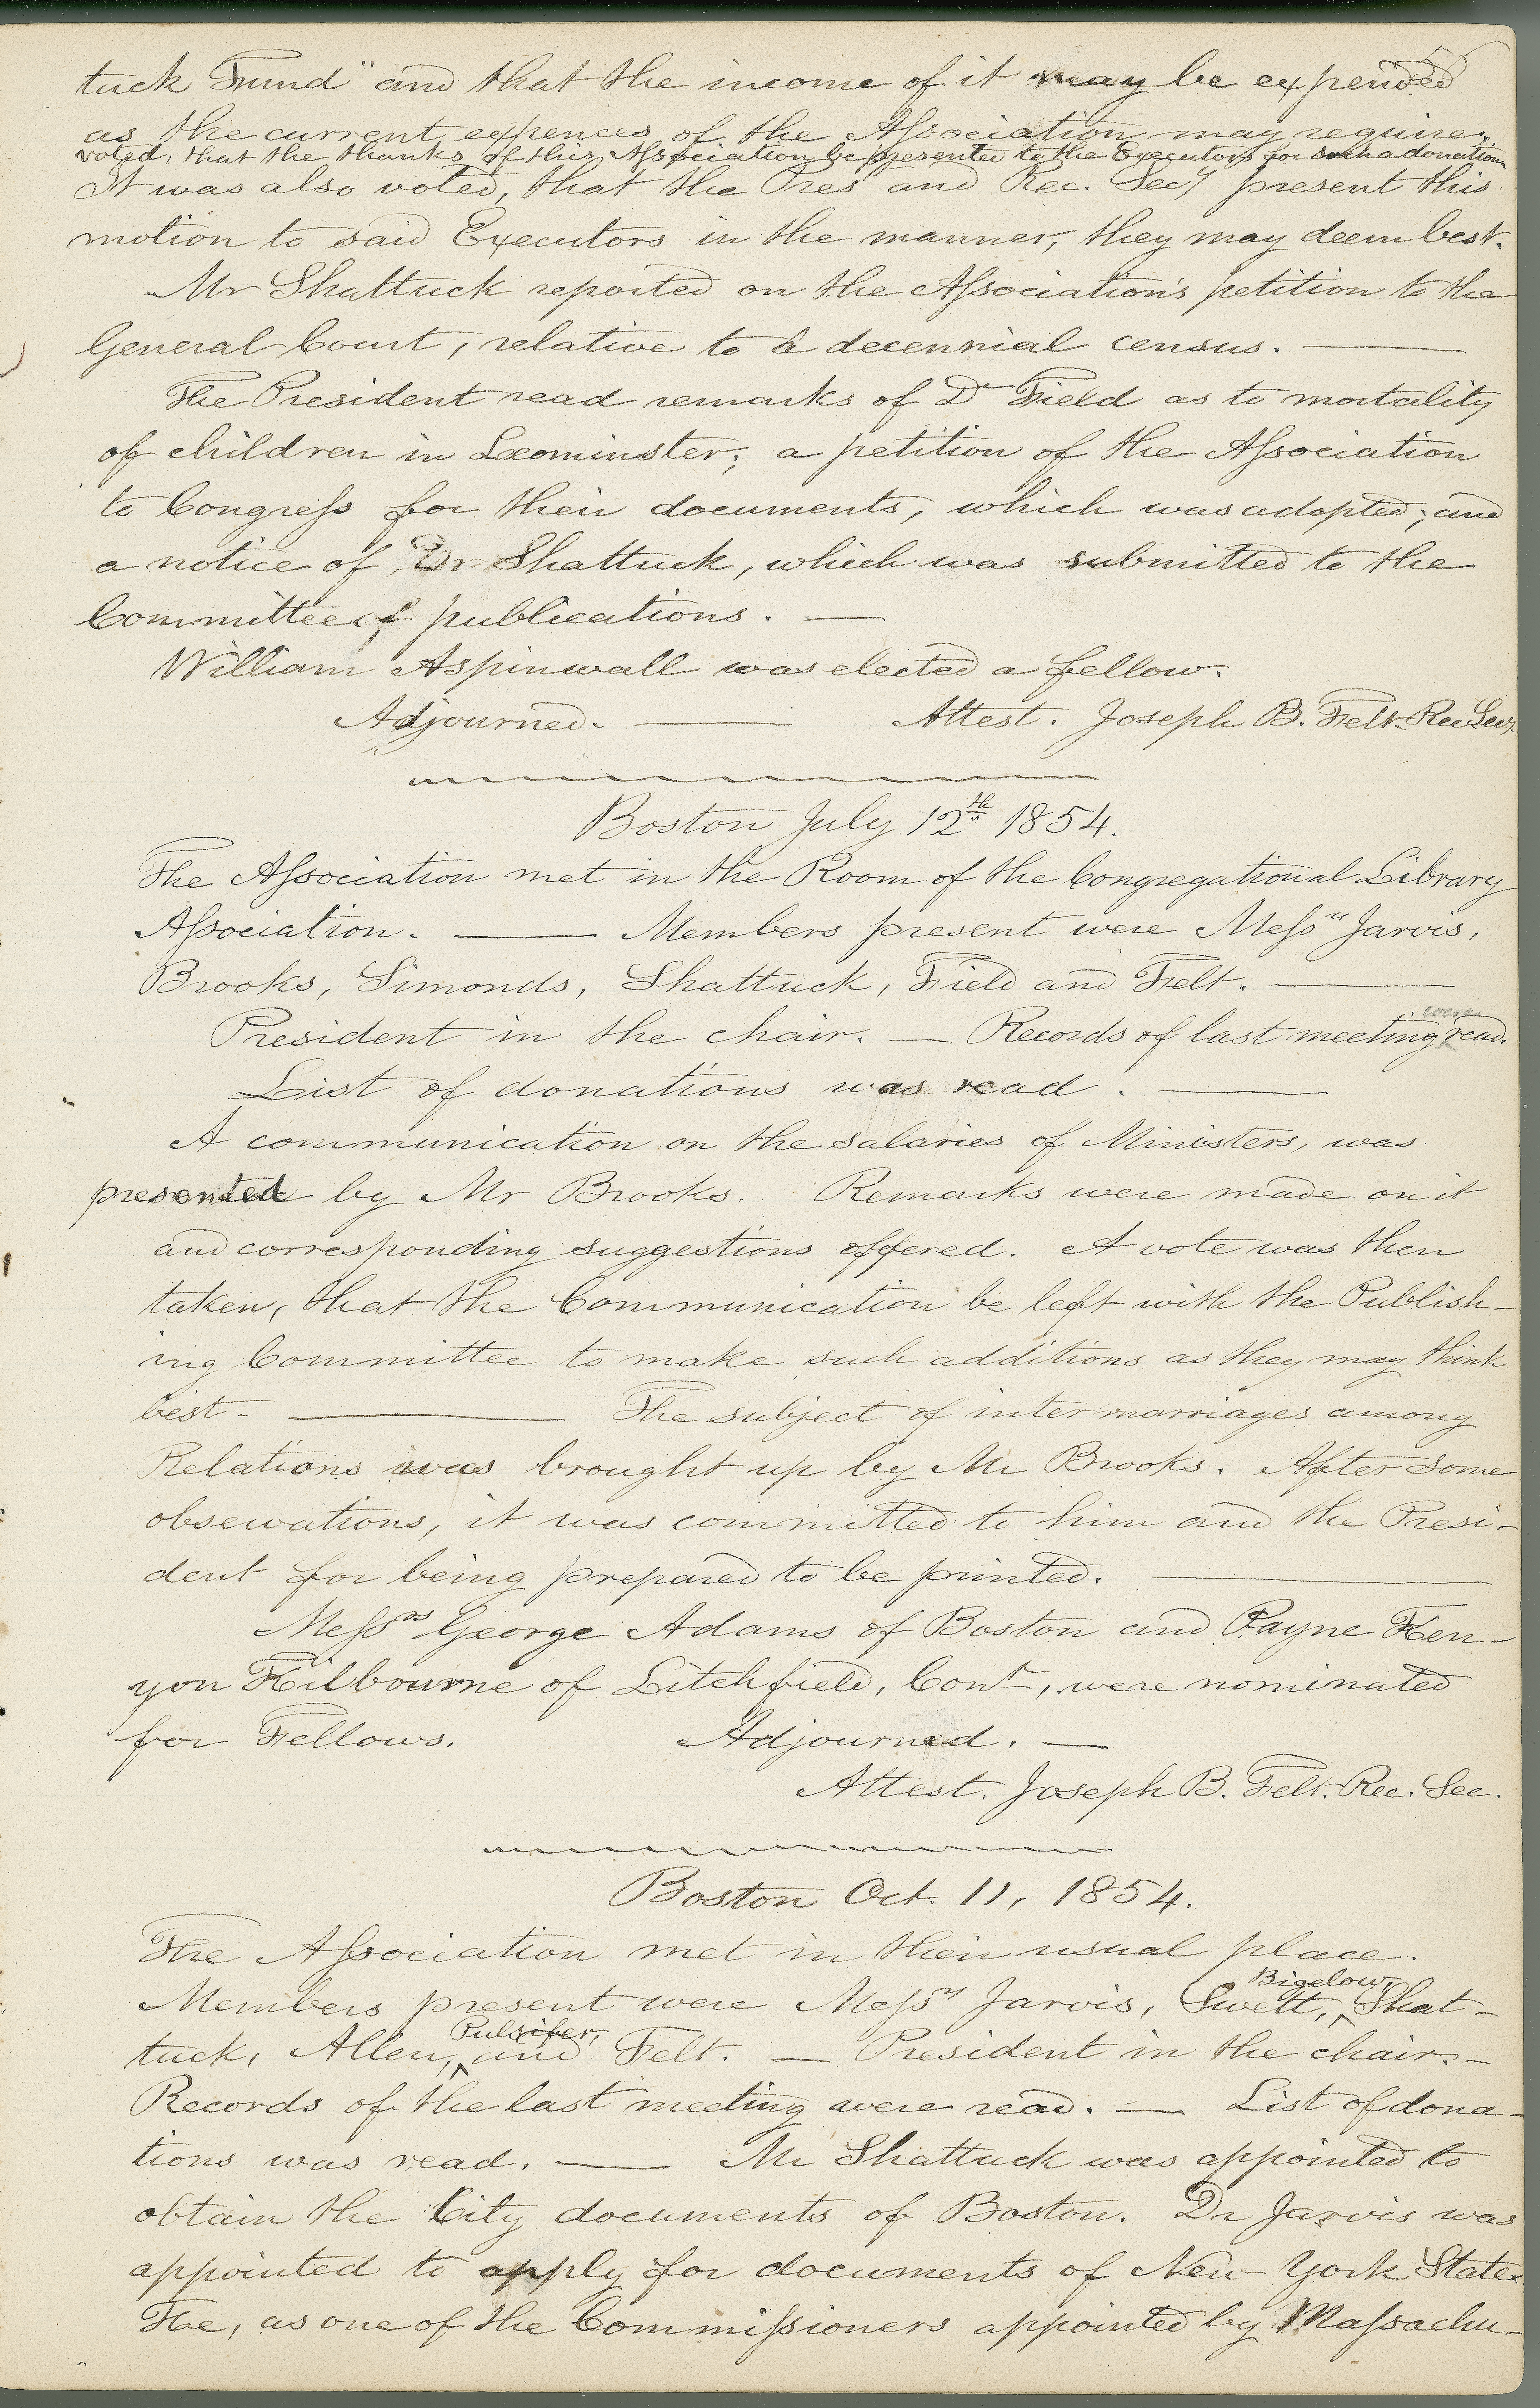 56
tuck Fund" and that the income of it may be expended
as the current expences of the Association may require.
voted, that the thanks of this Association be presented to the Executors for such a donation
It was also voted, that the Pres and Rec. Secy present this
motion to said Executors in the manner, they may deem best.
Mr Shattuck reported on the Association's petition to the
General Court, relative to a decennial census. —
The President read remarks of Dr Field as to mortality
of children in Leominster; a petition of the Association
to Congress for their documents, which was adopted; and
a notice of Dr Shattuck, which was submitted to the
Committee of publications. —
William Aspinwall was elected a fellow.
Adjourned. — Attest. Joseph B. Felt Rec Secy.
Boston July 12th 1854.
The Association met in the Room of the Congregational Library
Association. — Members present were Messrs Jarvis,
Brooks, Simonds, Shattuck, Field and Felt. —
President in the chair. — Records of last meeting were read.
List of donations was read. —
A communication on the salaries of Ministers, was
presented by Mr Brooks. Remarks were made on it
and corresponding suggestions offered. A vote was then
taken, that the Communication be left with the Publish-
ing Committee to make such additions as they may think
best. — The subject of intermarriages among
Relations was brought up by Mr Brooks. After some
observations, it was committed to him and the Presi-
dent for being prepared to be printed. —
Messrs George Adams of Boston and Payne Ken-
yon Kilbourne of Litchfield, Cont, were nominated
for Fellows. Adjourned. —
Attest. Joseph B. Felt. Rec. Sec.
Boston Oct. 11, 1854.
The Association met in their usual place.
Members present were Messrs Jarvis, Swett, Bigelow, Shat-
tuck, Allen, Pulsifer, and Felt. — President in the chair. —
Records of the last meeting were read. — List of dona-
tions was read. — Mr Shattuck was appointed to
obtain the City documents of Boston. Dr Jarvis was
appointed to apply for documents of New-York State.
He, as one of the Commissioners appointed by Massachu-